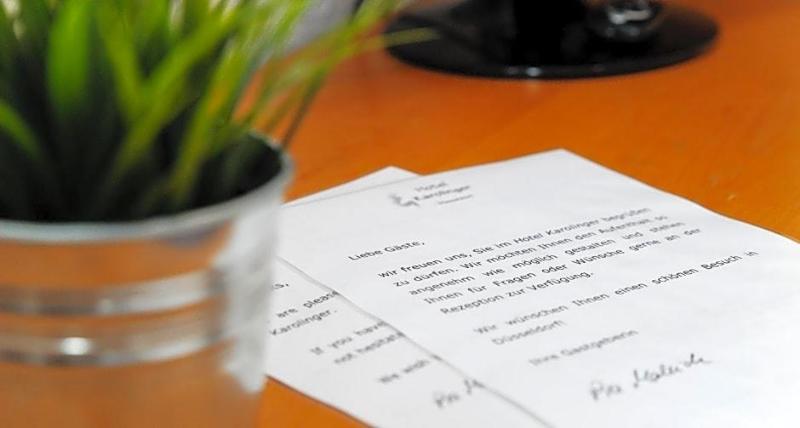 Hotel
Karolinger
Liebe Gäste,
Wir freuen uns, Sie im Hotel Karolinger begrüßen
zu dürfen. Wir möchten Ihnen den Aufenthalt so
angenehm wie möglich gestalten und stehen
Ihnen für Fragen oder Wünsche gerne an der
Rezeption zur Verfügung.
Wir wünschen Ihnen einen schönen Besuch in
Düsseldorf!
Ihre Gastgeberin
are please
Karolinger.
If you have
not hesitate
We wish